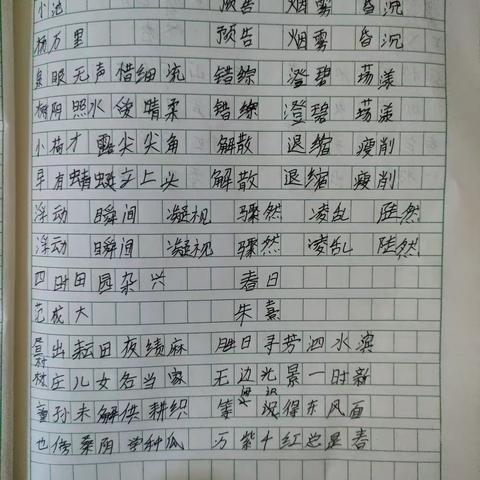 小池 预告 烟雾 昏沉
杨万里 预告 烟雾 昏沉
泉眼无声惜细流 错综 澄碧 荡漾
树阴照水爱晴柔 错综 澄碧 荡漾
小荷才露尖尖角 解散 退缩 瘦削
早有蜻蜓立上头 解散 退缩 瘦削
浮动 瞬间 凝视 骤然 凌乱 陡然
浮动 瞬间 凝视 骤然 凌乱 陡然
四时田园杂兴 春日
范成大 朱熹
昼出耘田夜绩麻 胜日寻芳泗水滨
村庄儿女各当家 无边光景一时新
童孙未解供耕织 等 识得东风面
也傍桑阴学种瓜 万紫千红总是春